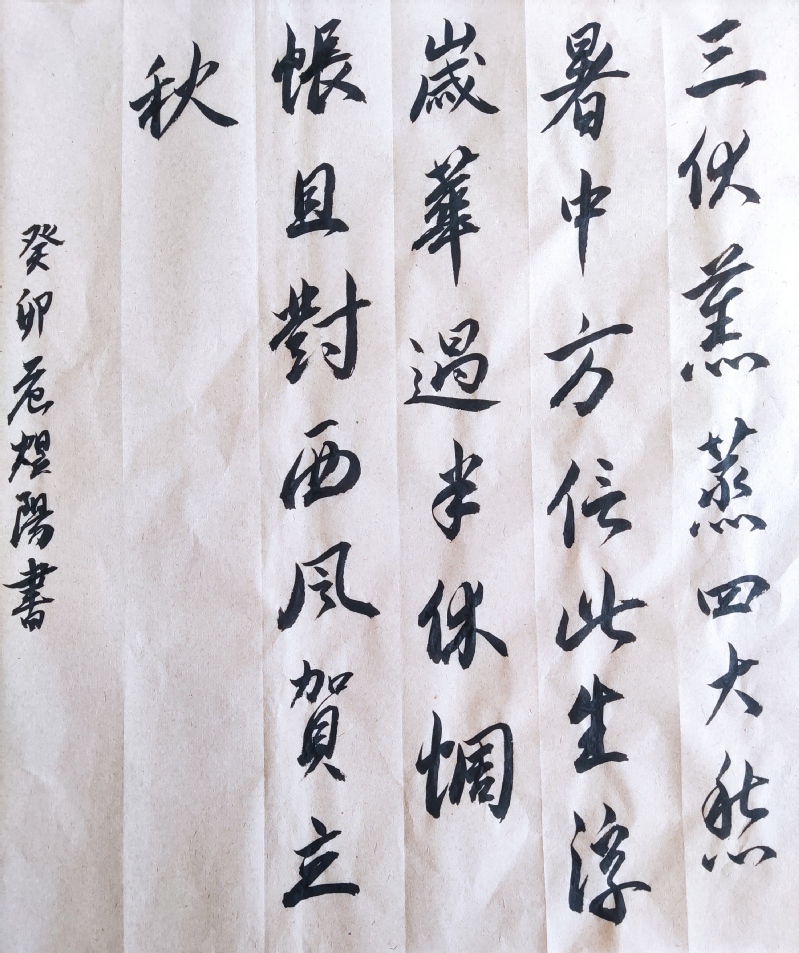 三伏蒸蒸四大愁
暑中方信此生浮
歲華過半休惆
悵且對西風賀立
秋
癸卯危煜陽書